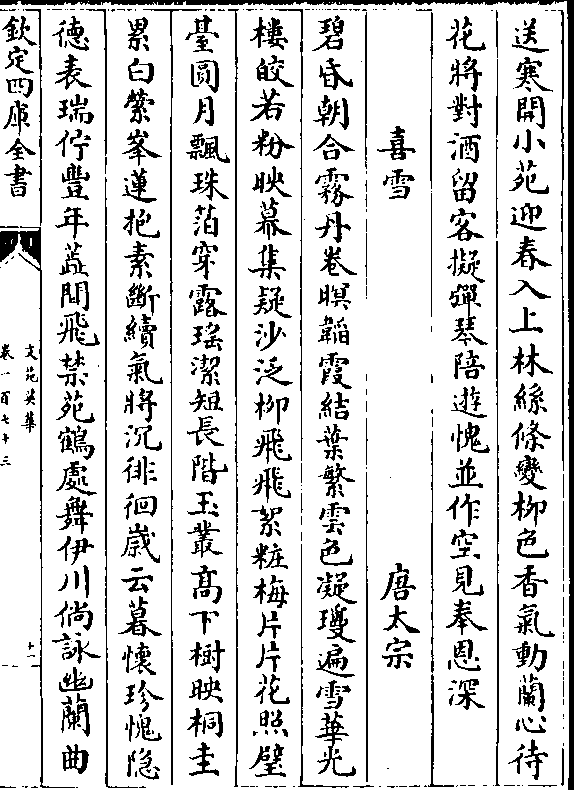 送寒開小苑迎春入上林絲條變柳色香氣動蘭心待
花將對酒留客擬彈琴陪遊愧並作空見奉恩深
喜雪 唐太宗
碧昏朝合霧丹卷暝韜霞結葉繁雲色凝瓊遍雪華光
樓皎若粉映幕集疑沙泛柳飛飛絮粧梅片片花照璧
臺圓月飄珠箔穿露瑤潔短長階玉叢高下樹映桐圭
累白縈峯蓮抱素斷續氣將沉徘徊歲云暮懷珍愧隐
德表瑞佇豐年蕋間飛禁苑鶴處舞伊川倘詠幽蘭曲
欽定四庫全書
文苑英華
卷一百七十三
十一